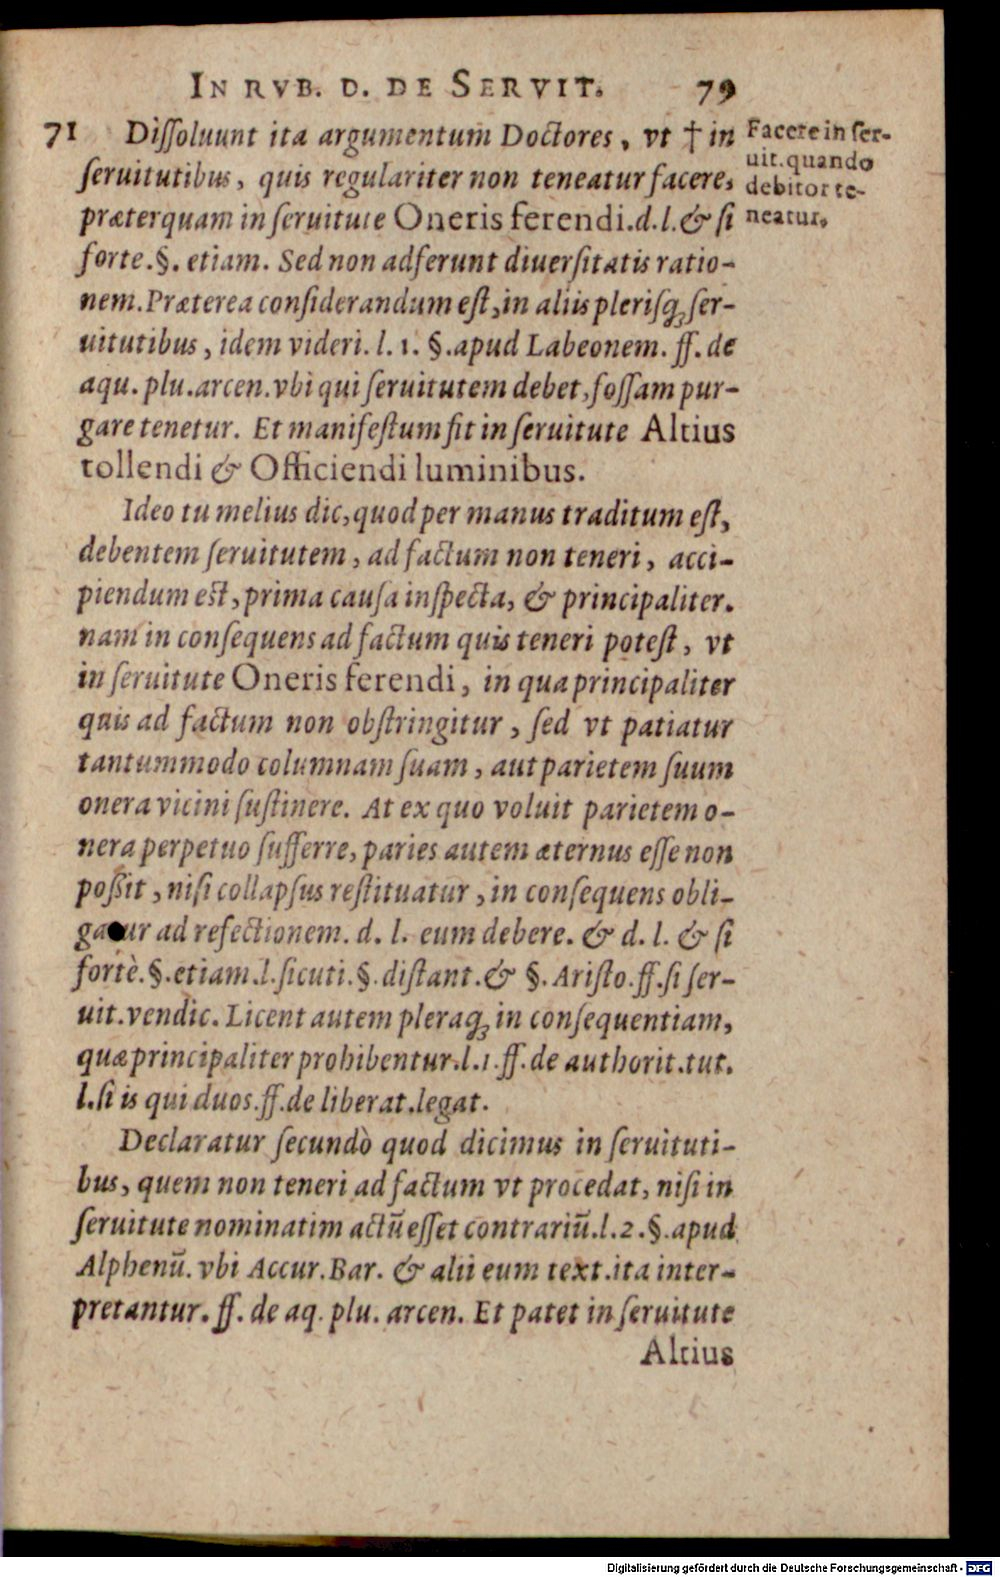 IN RVB. D. DE SERVIT. 79
71 Dissoluunt ita argumentum Doctores, vt † in
seruitutibus, quis regulariter non teneatur facere,
præterquam in seruitute Oneris ferendi.d.l.& si
forte.§. etiam. Sed non adferunt diuersitatis ratio-
nem.Præterea considerandum est,in aliis plerisq; ser-
uitutibus, idem videri. l. 1. §.apud Labeonem. ff. de
aqu. plu.arcen.vbi qui seruitutem debet,fossam pur-
gare tenetur. Et manifestum fit in seruitute Altius
tollendi & Officiendi luminibus.
Facere in ser-
uit.quando
debitor te-
neatur.
Ideo tu melius dic,quod per manus traditum est,
debentem seruitutem, ad factum non teneri, acci-
piendum est,prima causa inspecta, & principaliter.
nam in consequens ad factum quis teneri potest, vt
in seruitute Oneris ferendi, in qua principaliter
quis ad factum non obstringitur, sed vt patiatur
tantummodo columnam suam, aut parietem suum
onera vicini sustinere. At ex quo voluit parietem o-
nera perpetuo sufferre, paries autem æternus esse non
possit, nisi collapsus restituatur, in consequens obli-
gatur ad refectionem. d. l. eum debere. & d. l. & si
fortè.§.etiam.l.sicuti.§.distant.& §. Aristo.ff.si ser-
uit.vendic. Licent autem pleraq; in consequentiam,
quæ principaliter prohibentur.l.1.ff.de authorit.tut.
l.si is qui duos.ff.de liberat.legat.
Declaratur secundò quod dicimus in seruituti-
bus, quem non teneri ad factum vt procedat, nisi in
seruitute nominatim actũ esset contrariũ.l.2.§.apud
Alphenũ. vbi Accur.Bar. & alii eum text.ita inter-
pretantur. ff. de aq. plu. arcen. Et patet in seruitute
Altius
Digitalisierung gefördert durch die Deutsche Forschungsgemeinschaft - DFG